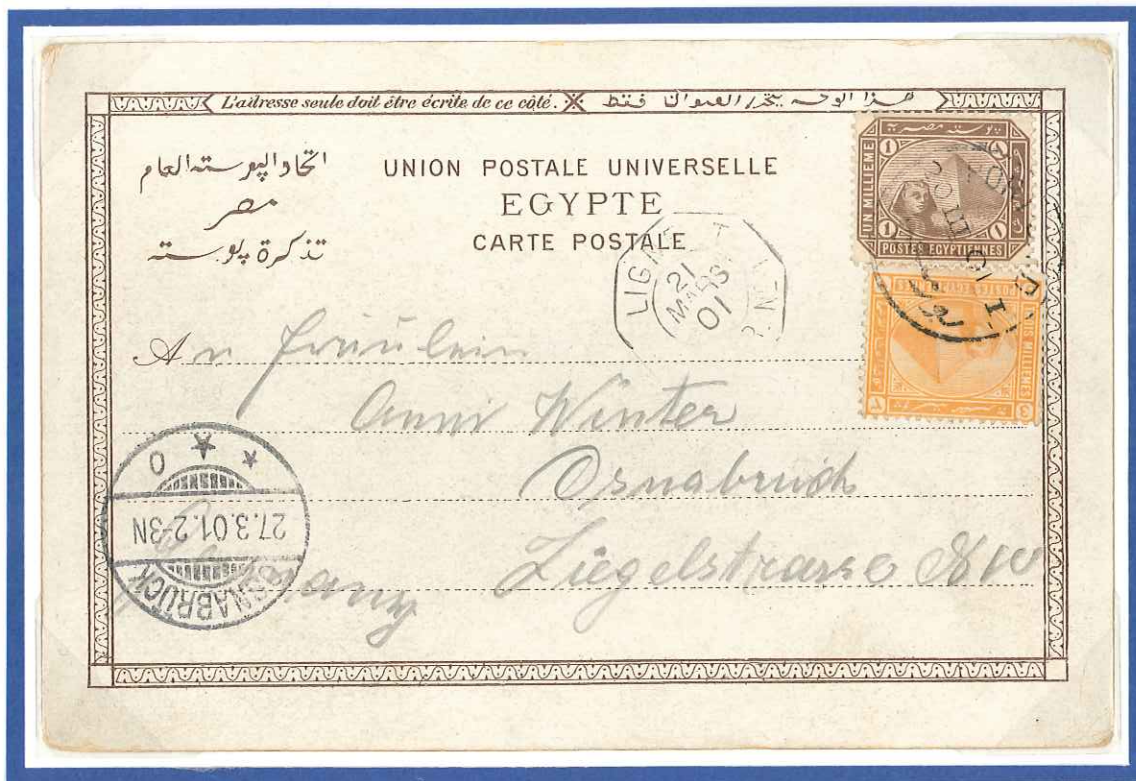 L'adresse seule doit être écrite de ce côté. هذا الوجه يحرر العنوان فقط
اتحاد البوسته العام
مصر
تذكرة بوسته
UNION POSTALE UNIVERSELLE
EGYPTE
CARTE POSTALE
بوسته مصريه
1 UN MILLIEME
POSTES EGYPTIENNES
MILLIEMES
LIGNE T
21
MARS
01
An Fräulein
Anni Winter
Osnabrück
Ziegelstrasse No 10
Germany
OSNABRÜCK
27.3.01.2-3N